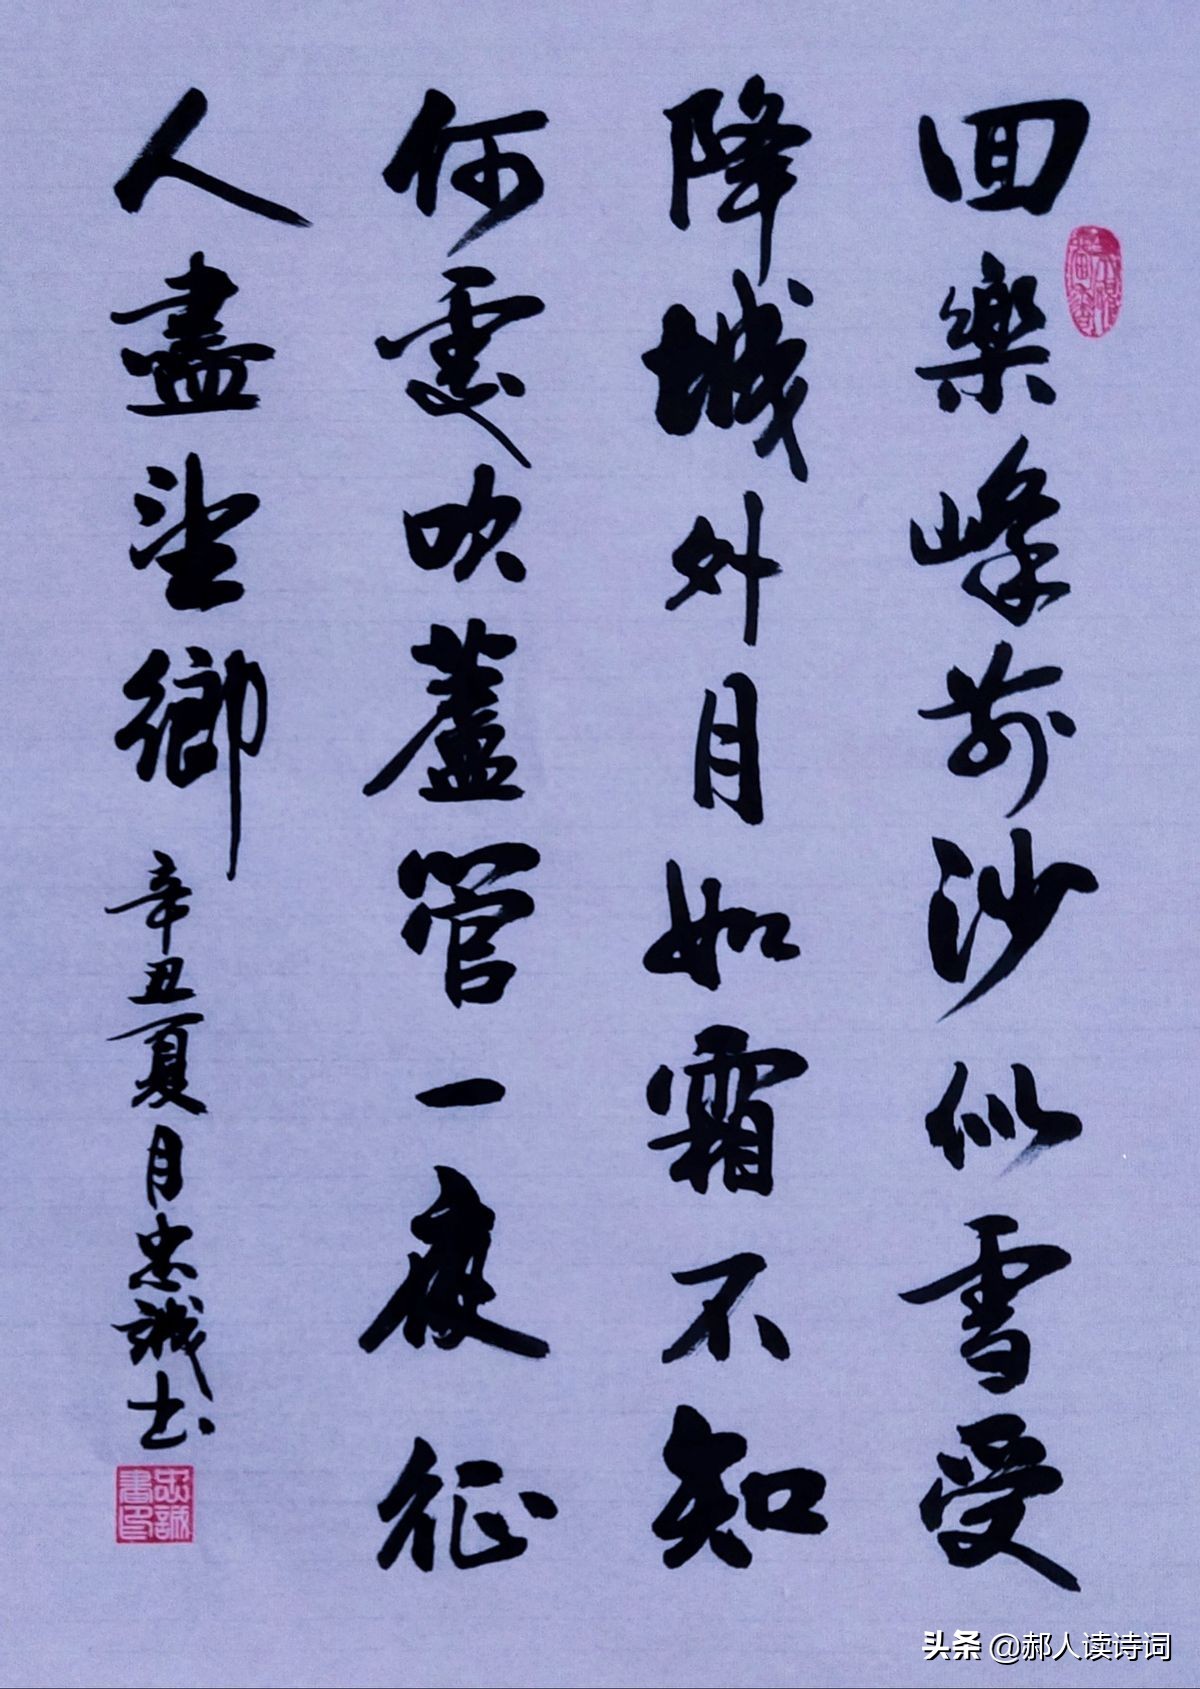 回樂峰前沙似雪受
降城外月如霜不知
何處吹蘆管一夜征
人盡望鄉
辛丑夏月忠誠书
忠誠書印
头条 @郝人读诗词